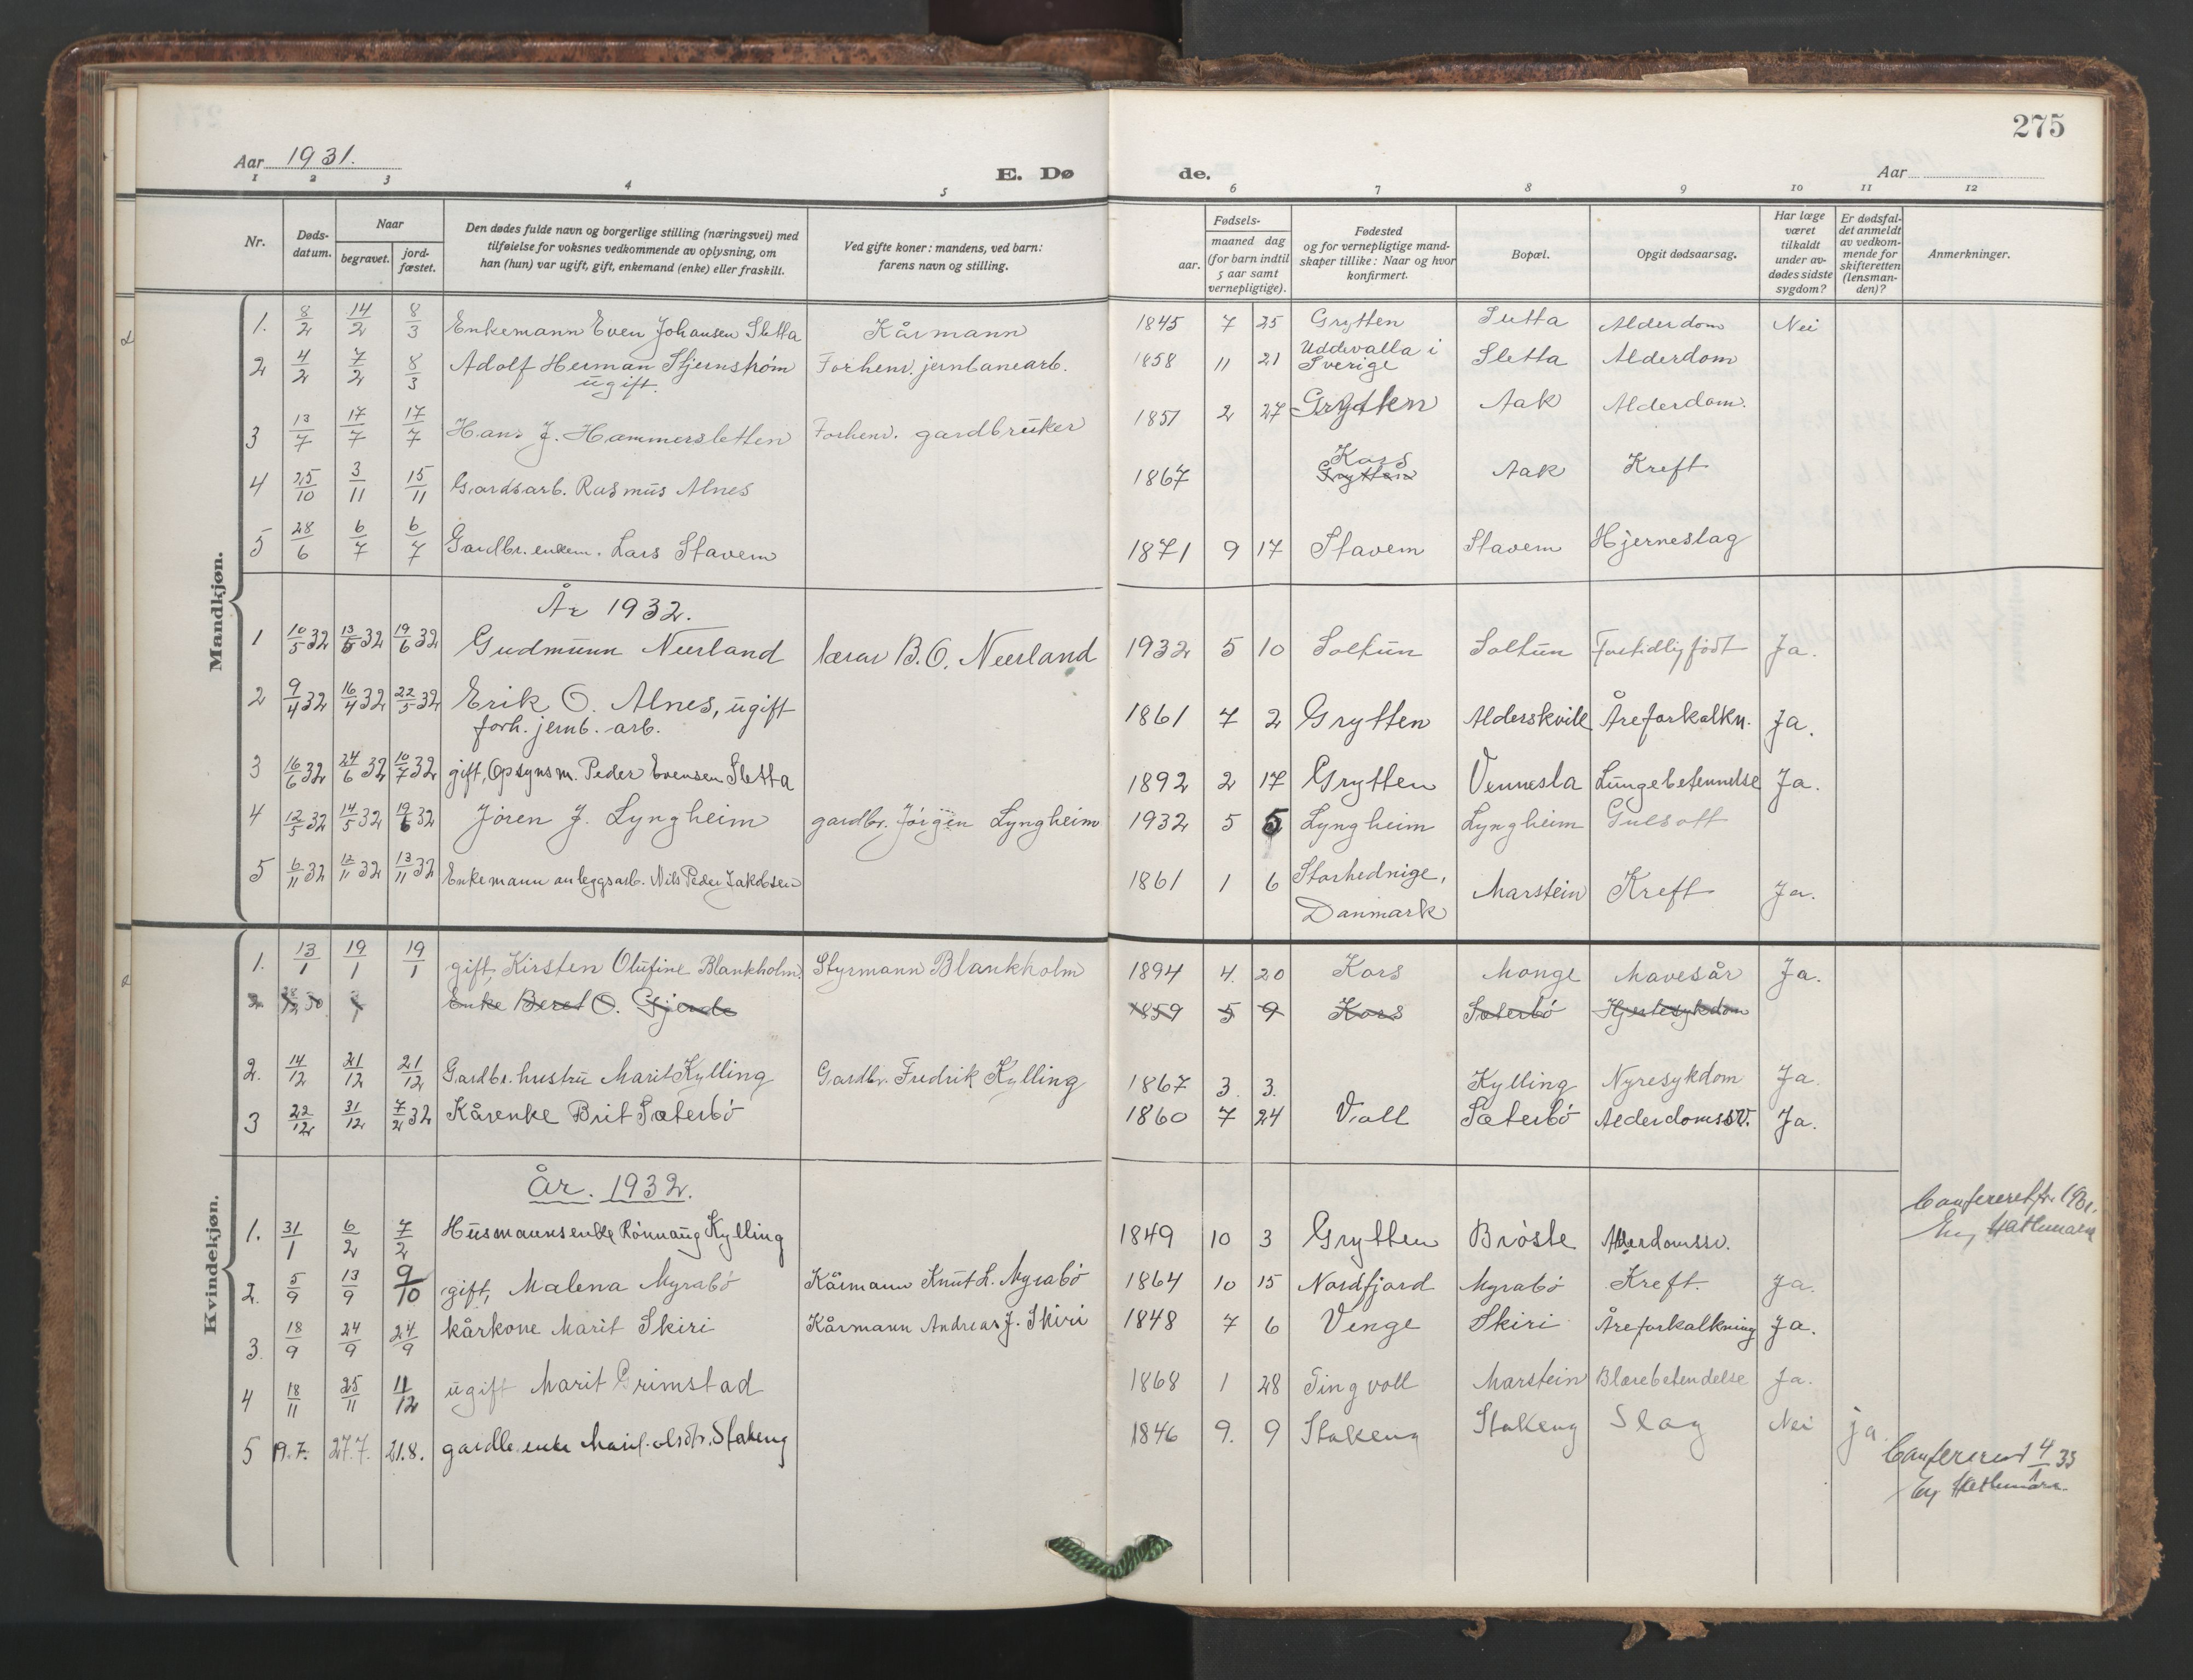 275
Aar 1931.
E. Dø de.
Aar
1 2 3 4 5 6 7 8 9 10 11 12
Nr.
Døds-
datum.
Naar
begravet.
jord-
fæstet.
Den dødes fulde navn og borgerlige stilling (næringsvei) med
tilføielse for voksnes vedkommende av oplysning, om
han (hun) var ugift, gift, enkemand (enke) eller fraskilt.
Ved gifte koner: mandens, ved barn:
farens navn og stilling.
Fødsels-
aar.
maaned dag
(for barn indtil
5 aar samt
vernepligtige).
Fødested
og for vernepligtige mand-
skaper tillike: Naar og hvor
konfirmert.
Bopæl.
Opgit dødsaarsag.
Har læge
været
tilkaldt
under av-
dødes sidste
sygdom?
Er dødsfal-
det anmeldt
av vedkom-
mende for
skifteretten
(lensman-
den)?
Anmerkninger.
Mandkjøn.
1. 8/2 14/2 8/3 Enkemann Even Johansen Sletta Kårmann 1845 7 25 Grytten Sletta Alderdom Nei
2 4/2 7/2 8/3 Adolf Herman Stjernstrøm Forhenv. jernbanearb. 1858 11 21 Uddevalla i Sletta Alderdom
ugift. Sverige
3 13/7 17/7 17/7 Hans J. Hammersletten Forhenv. gardbruker 1851 2 27 Grytten Aak Alderdom.
4 25/10 3/11 15/11 Gardsarb. Rasmus Alnes 1867 Kors Aak Kreft
Grytten
5 28/6 6/7 6/7 Gardbr. enkem. Lars Stavem 1871 9 17 Stavem Stavem Hjerneslag
År 1932.
1 10/5 32 13/5 32 19/6 32 Gudmunn Neerland lærar B.O. Neerland 1932 5 10 Soltun Soltun Fortidlig født Ja.
2 9/4 32 16/4 32 22/5 32 Erik O. Alnes, ugift 1861 7 2 Grytten Alderskvile Åreforkalkn. Ja.
forh. jernb. arb.
3 16/6 32 24/6 32 10/7 32 gift, Opsynsm. Peder Evensen Sletta 1892 2 17 Grytten Vennesla Lungebetennelse Ja.
4 12/5 32 14/5 32 19/6 32 Jøren J. Lyngheim gardbr. Jörgen Lyngheim 1932 5 5 Lyngheim Lyngheim Gulsott
5 6/11 32 12/11 32 13/11 32 Enkemann anleggsarb. Nils Peder Jakobsen 1861 1 6 Storhednige, Marstein Kreft Ja.
Danmark
Kvindekjøn.
1. 13/1 19/1 19/1 gift, Kirsten Olufine Blankholm. Styrmann Blankholm 1894 4. 20 Kors Monge Mavesår Ja.
2. 28/12 30 Enke Beret O. Gjerde 1859 5 9 Kors Sæterbö Hjertesykdom
2. 14/12 21/12 21/12 Gardbr. hustru Marit Kylling Gardbr. Fredrik Kylling 1867 3. 3. Kylling Nyresykdom Ja.
3 22/12 31/12 7/2 32 Kårenke Brit Sæterbö 1860 7 24 Voll Sæterbö Alderdomssv. Ja.
År. 1932.
1. 31/1 6/2 7/2 Husmannsenke Rönnaug Kylling 1849 10 3 Grytten Bröste Alderdomssv.
2. 5/9 13/9 9/10 gift, Malena Myrabö Kårmann Knut L. Myrabö 1864 10 15 Nordfjord Myrabö Kreft. Ja.
3. 18/9 24/9 24/9 kårkone Marit Skiri Kårmann Andreas J. Skiri 1848 7 6 Venge Skiri Åreforkalkning Ja.
4 18/11 25/11 11/12 ugift Marit Grimstad 1868 1 28 Tingvoll Marstein Blærebetendelse Ja.
5 19.7. 27.7. 21.8. gardbr. enke Marit olsdtr. Stakeng 1846 9. 9 Stakeng Stakeng Slag Nei ja.
Confereret
Confereret 4/1 33